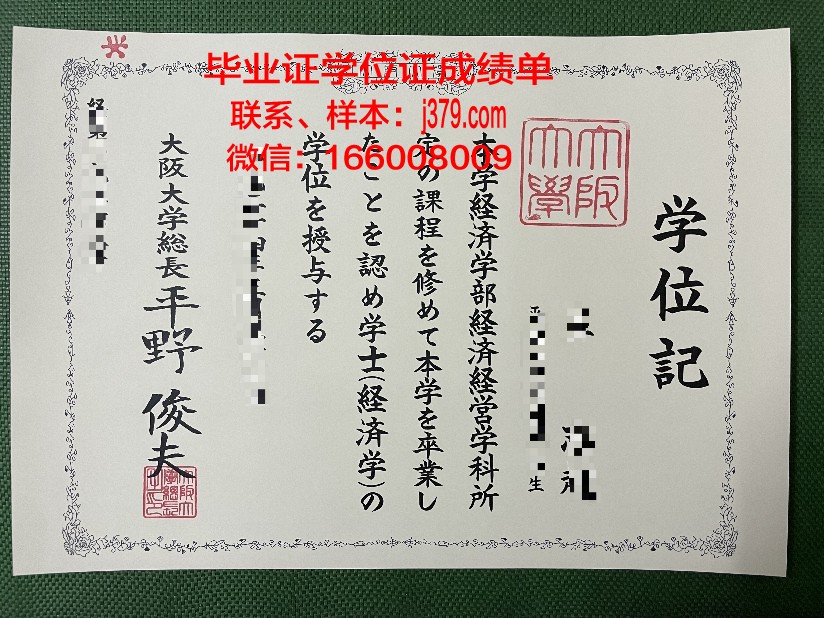 毕业证学位证成绩单
联系、样本：j379.com
微信：166008009
学位記
大阪大學
生
本学経済学部経済経営学科所
定の課程を修めて本学を卒業し
たことを認め学士(経済学)の
学位を授与する
大阪大学総長 平野俊夫